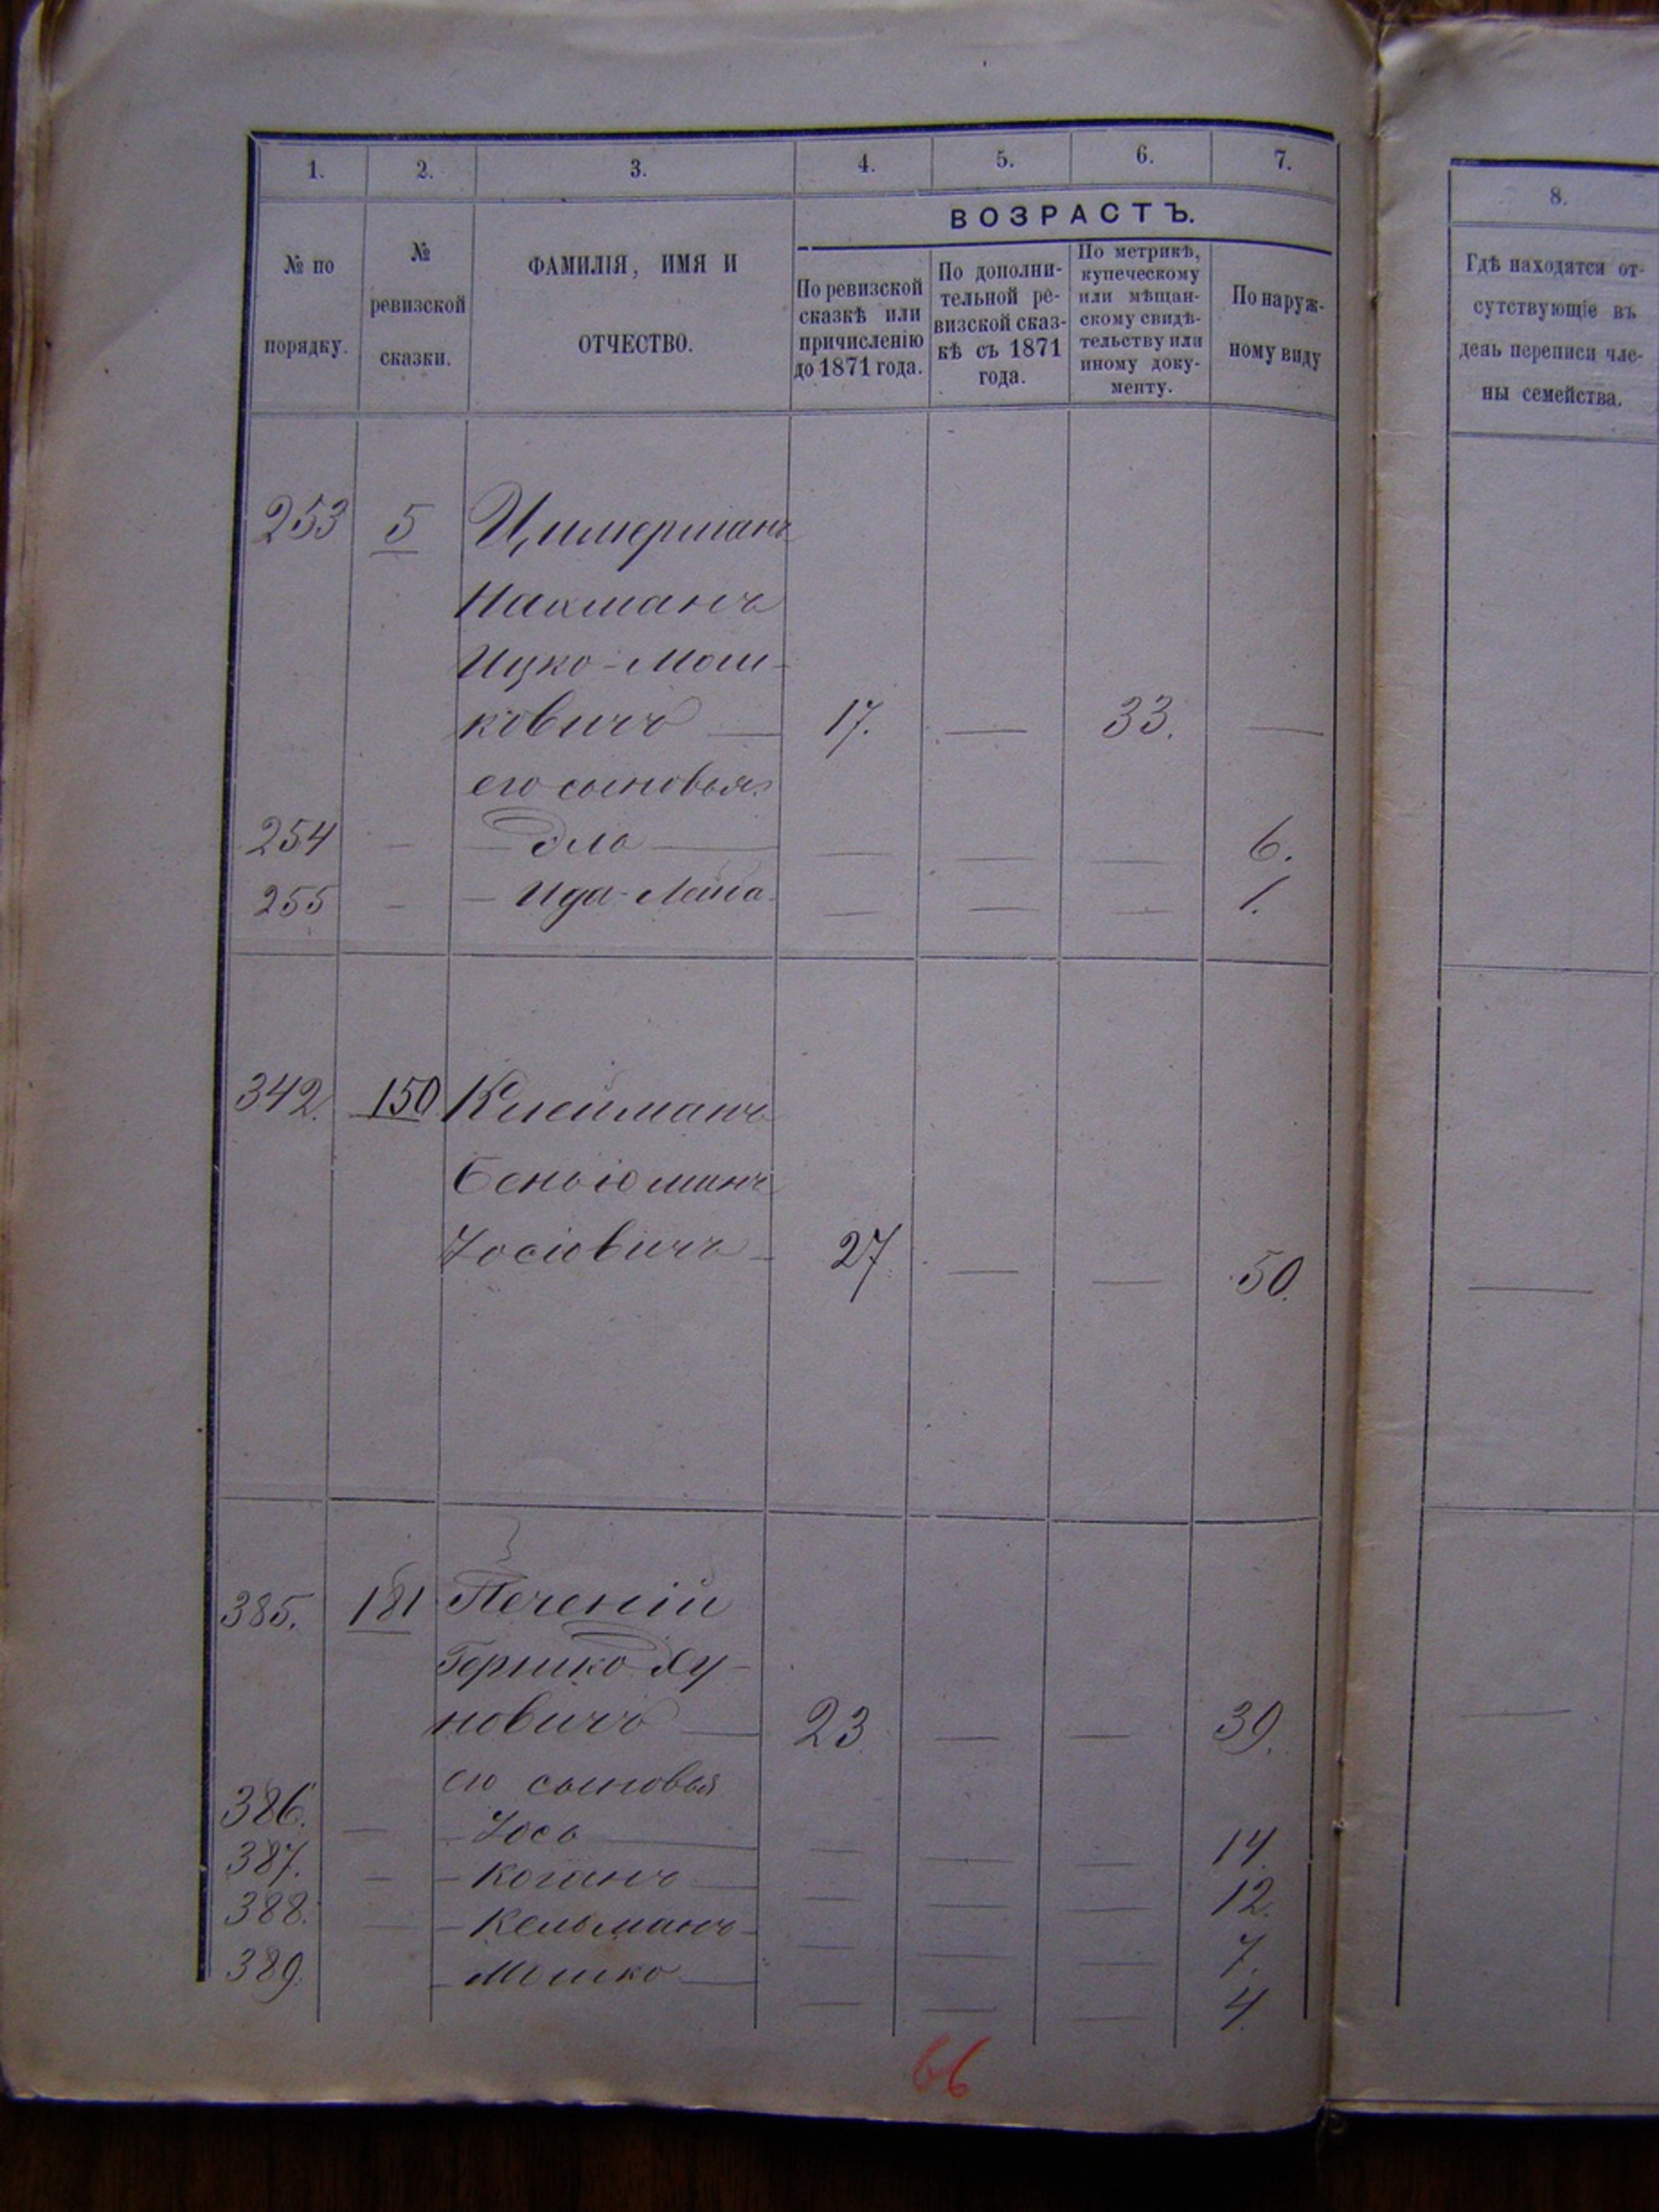 1. 2. 3. 4. 5. 6. 7.
ВОЗРАСТЪ.
№ по
порядку.
№
ревизской
сказки.
ФАМИЛІЯ, ИМЯ И
ОТЧЕСТВО.
По ревизской
сказкѣ или
причисленію
до 1871 года.
По дополни-
тельной ре-
визской сказ-
кѣ съ 1871
года.
По метрикѣ,
купеческому
или мѣщан-
скому свидѣ-
тельству или
иному доку-
менту.
По наруж-
ному виду
253 5 Цимерманъ
Нахманъ
Ицко-Мош-
ковичъ — 17. — 33. —
его сыновья
254 - - Эло — — — — 6.
255 - - Ида-Лейба — — — 1.
342. 150 Клейманъ
Беньюминъ
Іосіовичъ - 27 — — 50.
385. 181 Печеній
Гершко Ху-
новичъ — 23 — — 39.
его сыновья
386. — - Іось — — — — 14.
387. - - Коганъ — — — — 12.
388. — - Кельманъ - — — — 7.
389. - Мошко — — — — 4.
66
8.
Гдѣ находятся от-
сутствующіе въ
день переписи чле-
ны семейства.
—
—